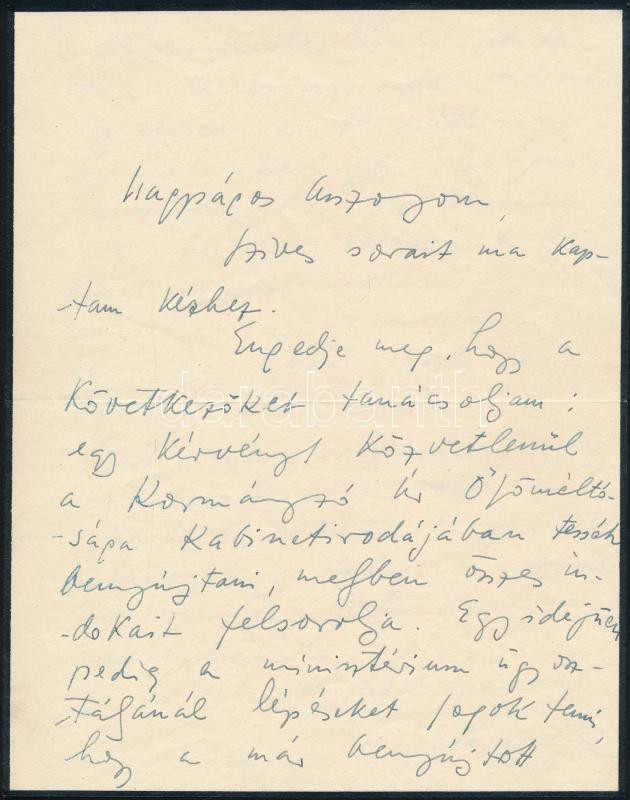 Nagyságos Asszonyom,
szíves sorait ma kap-
-tam kézhez.
Engedje meg, hogy a
Következőket tanácsoljam:
egy Kérvényt Közvetlenül
a Kormányzó Úr Őfőméltó-
-sága Kabinetirodájában tessék
benyújtani, melyben összes in-
-dokait felsorolja. Egyidejűen
pedig a minisztérium ügyosz-
-tályánál lépéseket fogok tenni,
hogy a már benyújtott
darabanth